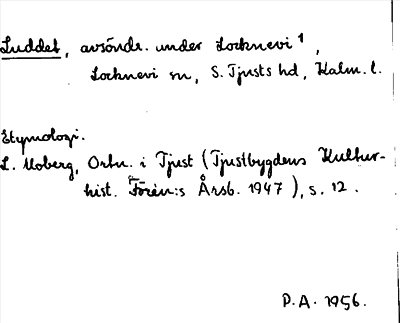 Luddet, avsöndr. under Locknevi 1,
Locknevi sn, S. Tjusts hd, Kalm. l.
Etymologi.
L. Moberg, Ortn. i Tjust (Tjustbygdens Kultur-
hist. Fören:s Årsb. 1947), s. 12.
P.A. 1956.